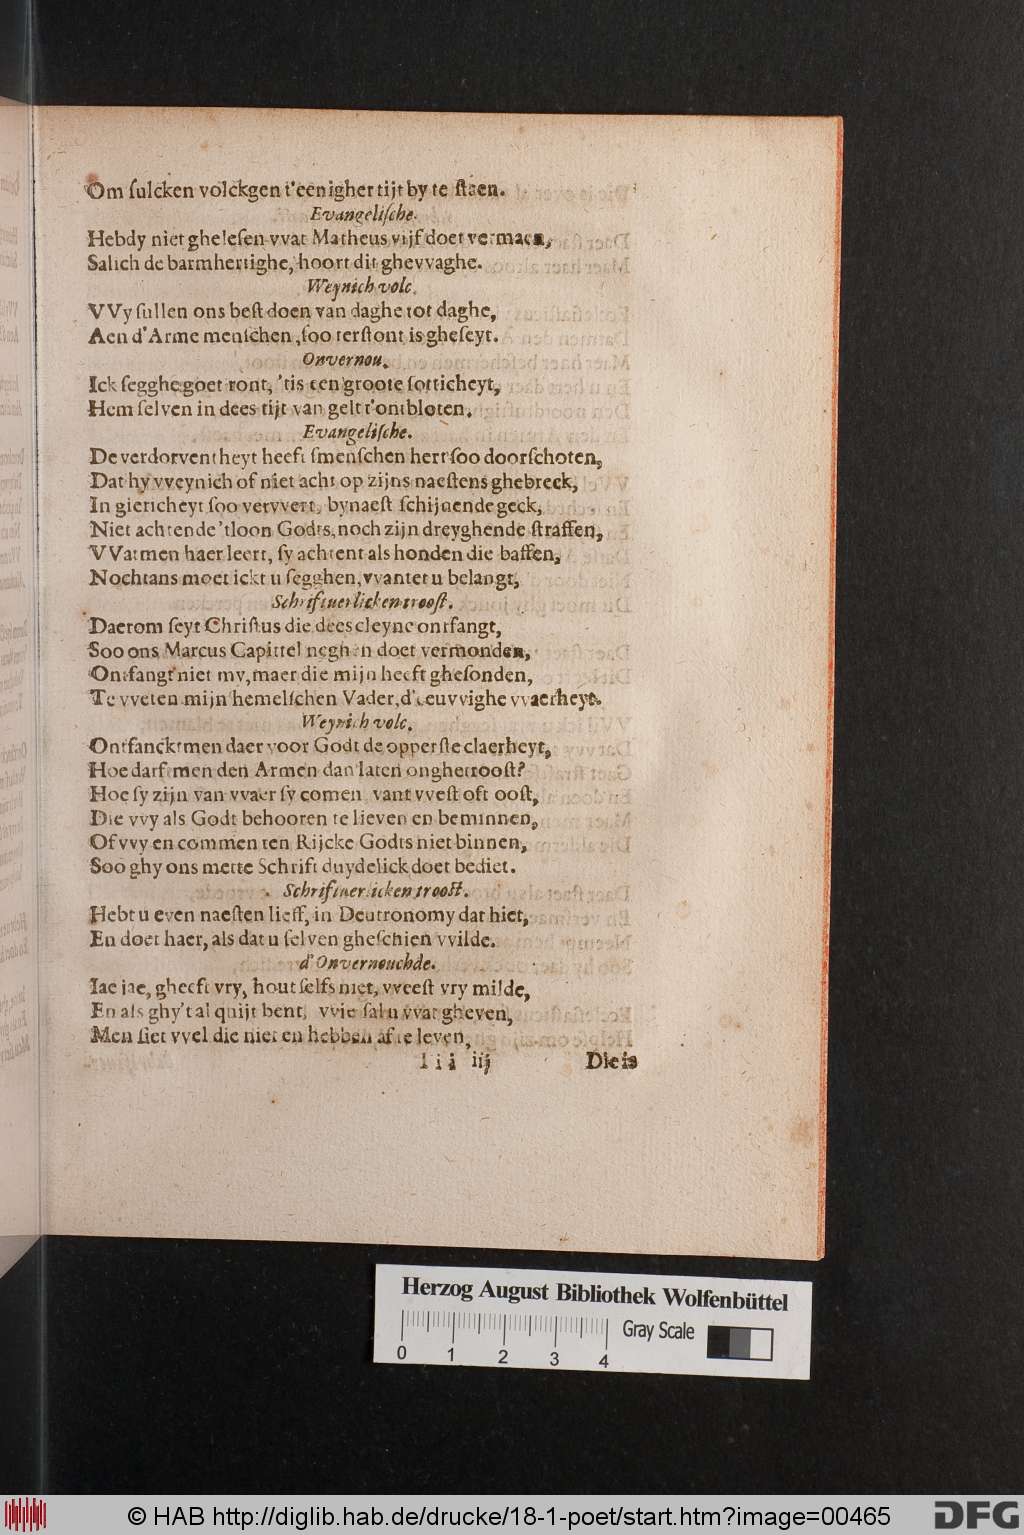 Om ſulcken volckgen t'eenigher tijt by te ſtaen.
Evangeliſche.
Hebdy niet gheleſen vvat Matheus vijf doet vermaen,
Salich de barmhertighe, hoort dit ghevvaghe.
Weynich volc.
VVy ſullen ons beſt doen van daghe tot daghe,
Aen d'Arme menſchen, ſoo terſtont is gheſeyt.
Onvernou.
Ick ſegghe goet ront, 'tis een groote ſotticheyt,
Hem ſelven in dees tijt van gelt t'ontbloten.
Evangeliſche.
De verdorventheyt heeft ſmenſchen hert ſoo doorſchoten,
Dat hy vveynich of niet acht op zijns naeſtens ghebreck,
In giericheyt ſoo vervvert, bynaeſt ſchijnende geck,
Niet achtende 'tloon Godts, noch zijn dreyghende ſtraffen,
VVatmen haer leert, ſy achtent als honden die baffen,
Nochtans moet ickt u ſegghen, vvantet u belangt,
Schriftuerlicken trooſt.
Daerom ſeyt Chriſtus die dees cleyne ontfangt,
Soo ons Marcus Capittel neghen doet vermonden,
Ontfangt niet my, maer die mijn heeft gheſonden,
Te vveten mijn hemelſchen Vader, d'eeuvvighe vvaerheyt.
Weynich volc.
Ontfancktmen daer voor Godt de opperſte claerheyt,
Hoe darfmen den Armen dan laten onghetrooſt?
Hoe ſy zijn van vvaer ſy comen vant vveſt oft ooſt,
Die vvy als Godt behooren te lieven en beminnen,
Of vvy en commen ten Rijcke Godts niet binnen,
Soo ghy ons mette Schrift duydelick doet bediet.
Schriftuerlicken trooſt.
Hebt u even naeſten lieff, in Deutronomy dat hiet,
En doet haer, als dat u ſelven gheſchien vvilde.
d'Onvernouchde.
Iae jae, gheeft vry, hout ſelfs niet, vveeſt vry milde,
En als ghy't al quijt bent, vvie ſal u vvat gheven,
Men ſiet vvel die niet en hebben af te leven,
Iii iij Die is
Herzog August Bibliothek Wolfenbüttel
Gray Scale
0 1 2 3 4
© HAB http://diglib.hab.de/drucke/18-1-poet/start.htm?image=00465
DFG